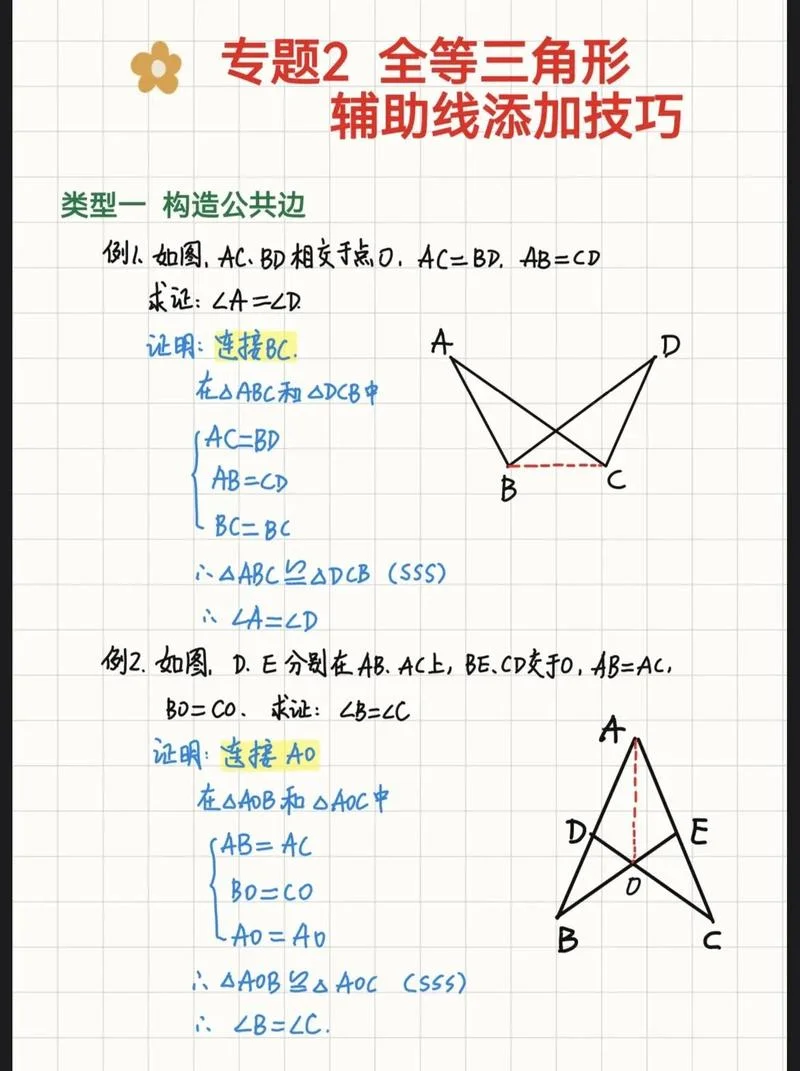 专题2 全等三角形
辅助线添加技巧
类型一 构造公共边
例1. 如图, AC、BD相交于点O, AC=BD, AB=CD
求证: ∠A=∠D.
证明: 连接BC.
在△ABC和△DCB中
AC=BD
AB=CD
BC=BC
∴△ABC≌△DCB (SSS)
∴ ∠A=∠D
A
D
B
C
例2. 如图, D、E分别在AB、AC上, BE、CD交于O, AB=AC,
BO=CO. 求证: ∠B=∠C
证明: 连接AO
在△AOB和△AOC中
AB=AC
BO=CO
AO=AO
∴△AOB≌△AOC (SSS)
∴ ∠B=∠C.
A
D
E
O
B
C